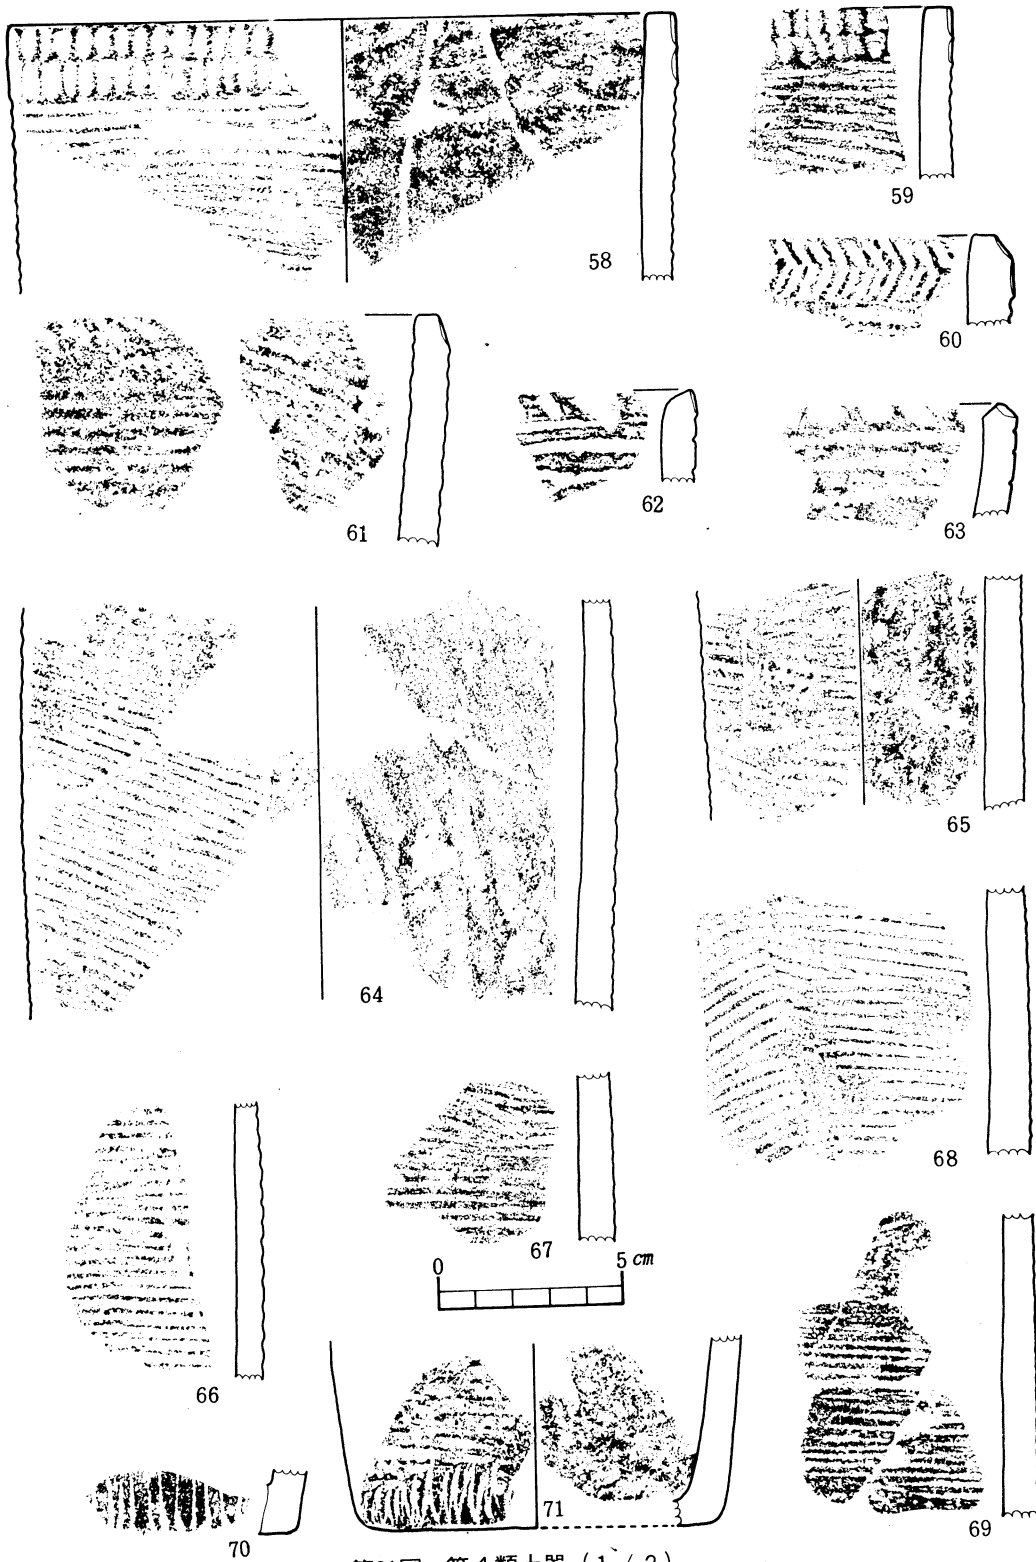 58
59
60
61
62
63
64
65
66
67
68
0 5 cm
69
70
71
第 回 第4類土器 (1/2)